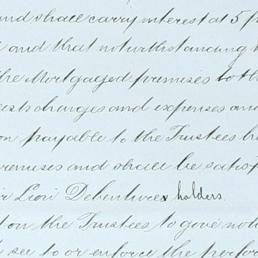 and shall carry interest at 5 p
and that notwithstanding
the Mortgaged premises to th
costs charges and expenses an
on payable to the Trustees h
remises and shall be satisf
ir Lien Debentures holders.
t on the Trustees to give not
see to or enforce the perfor